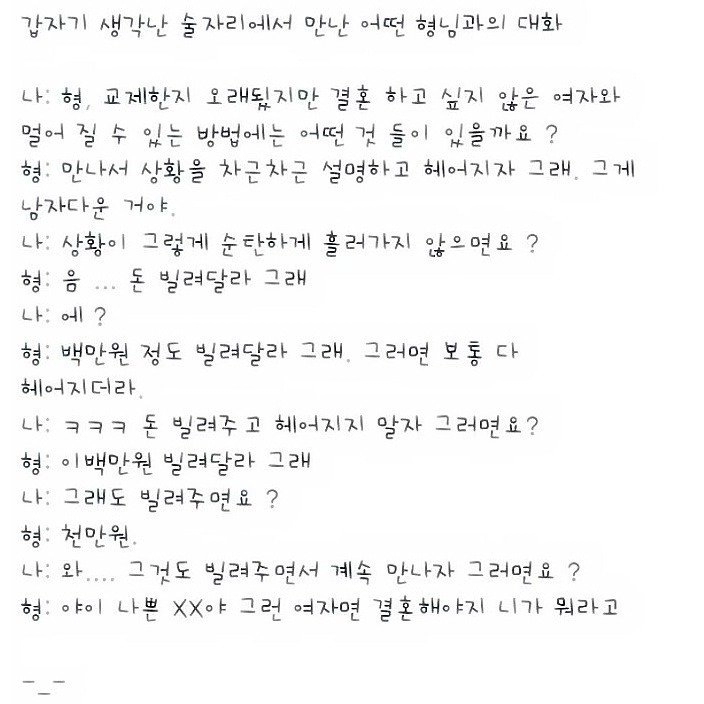 갑자기 생각난 술자리에서 만난 어떤 형님과의 대화
나: 형, 교제한지 오래됬지만 결혼 하고 싶지 않은 여자와
멀어 질 수 있는 방법에는 어떤 것 들이 있을까요 ?
형: 만나서 상황을 차근차근 설명하고 헤어지자 그래. 그게
남자다운 거야.
나: 상황이 그렇게 순탄하게 흘러가지 않으면요 ?
형: 음 ... 돈 빌려달라 그래
나: 에 ?
형: 백만원 정도 빌려달라 그래. 그러면 보통 다
헤어지더라.
나: ㅋㅋㅋ 돈 빌려주고 헤어지지 말자 그러면요?
형: 이백만원 빌려달라 그래
나: 그래도 빌려주면요 ?
형: 천만원.
나: 와.... 그것도 빌려주면서 계속 만나자 그러면요 ?
형: 야이 나쁜 XX야 그런 여자면 결혼해야지 니가 뭐라고
-_-